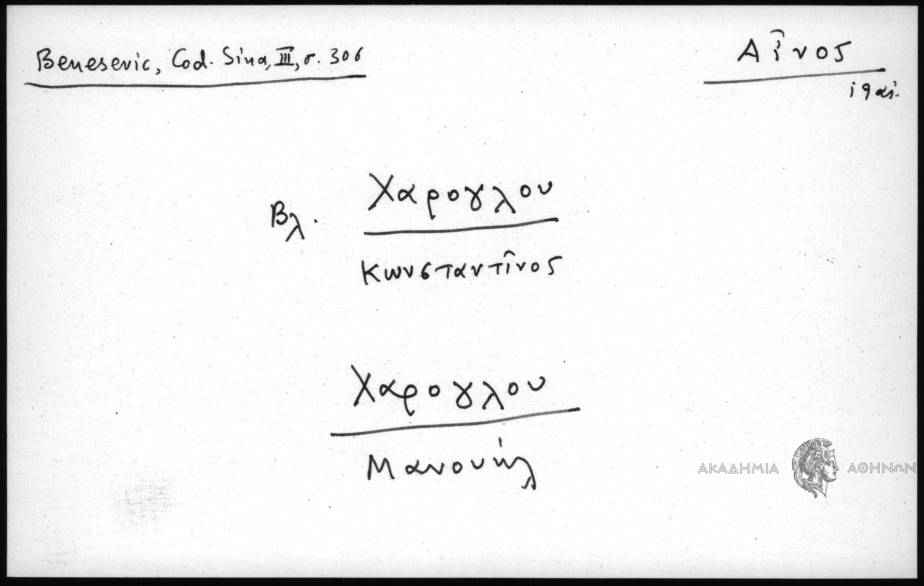 Benesevic, Cod. Sina, III, σ. 306
Αἶνος
ι9αι.
Βλ. Χαρογλου
Κωνσταντῖνος
Χαρογλου
Μανουήλ
ΑΚΑΔΗΜΙΑ ΑΘΗΝΩΝ